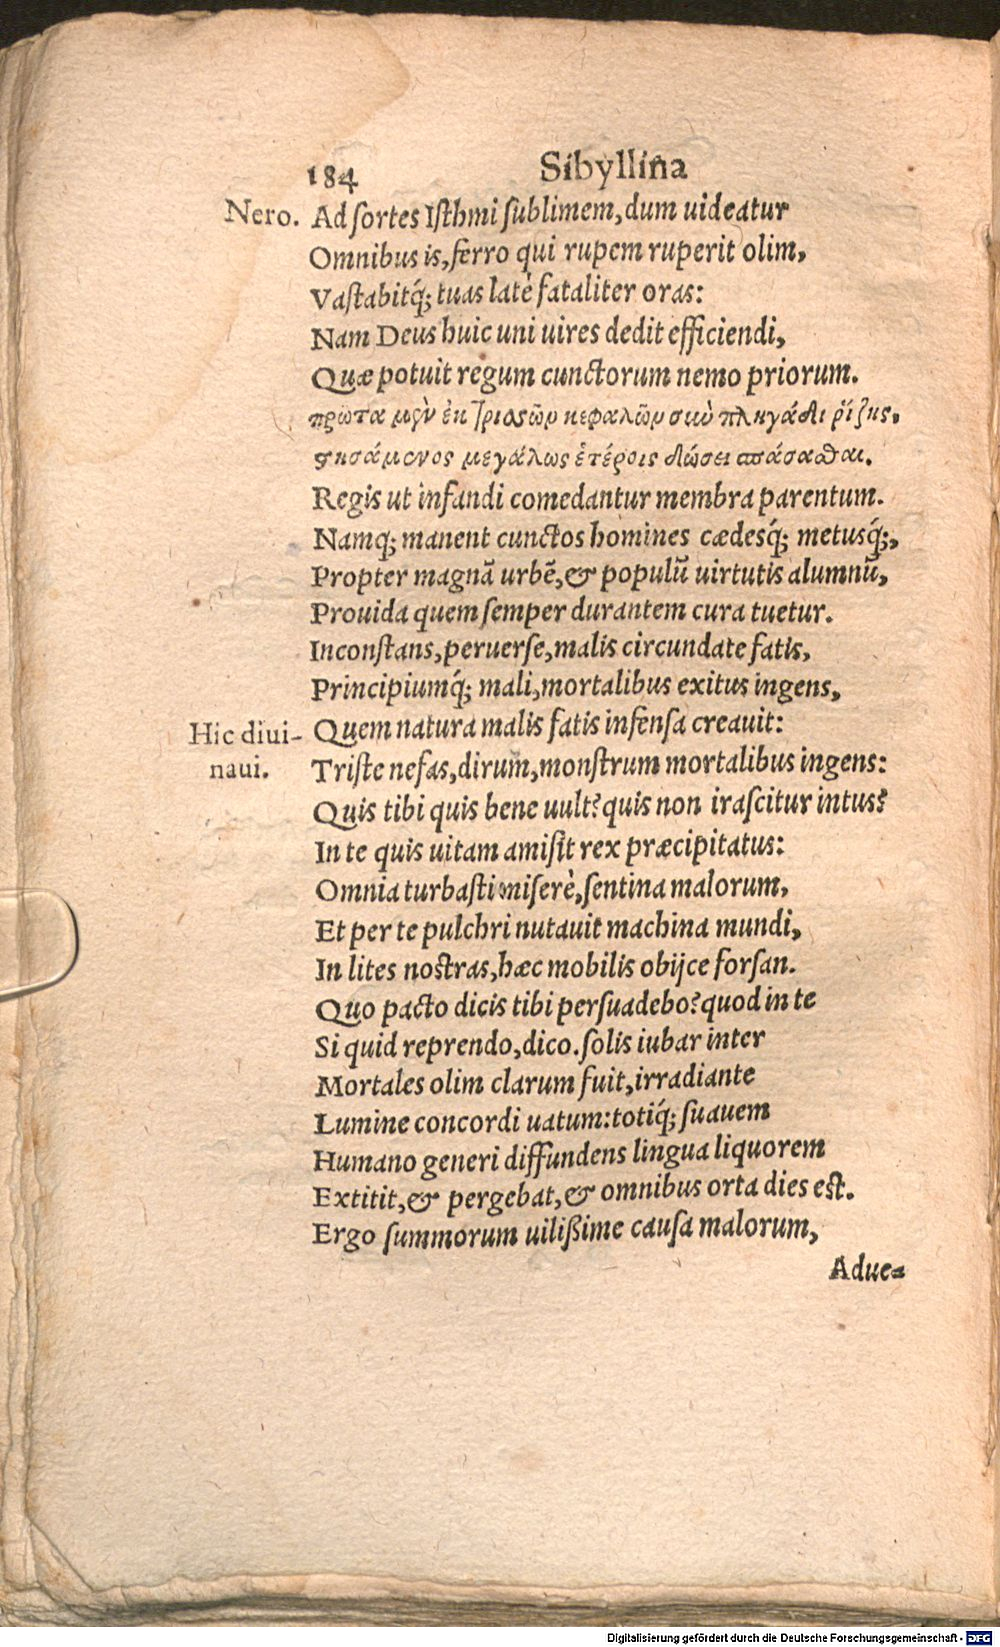 184 Sibyllina
Nero. Ad sortes Isthmi sublimem, dum uideatur
Omnibus is, ferro qui rupem ruperit olim,
Vastabitq́; tuas latè fataliter oras:
Nam Deus huic uni uires dedit efficiendi,
Quæ potuit regum cunctorum nemo priorum.
πρῶτα μὲν ἐκ τριοςῶν κεφαλῶν σιὼ πληγάδι ῥίζης,
ςησάμενος μεγάλως ἑτέροις δώσει πάσαθαι.
Regis ut infandi comedantur membra parentum.
Namq; manent cunctos homines cædesq́; metusq́;,
Propter magnã urbẽ, & populũ uirtutis alumnũ,
Prouida quem semper durantem cura tuetur.
Inconstans, peruerse, malis circundate fatis,
Principiumq́; mali, mortalibus exitus ingens,
Hic diui- Quem natura malis fatis infensa creauit:
naui. Triste nefas, dirum, monstrum mortalibus ingens:
Quis tibi quis bene uult? quis non irascitur intus?
In te quis uitam amisit rex præcipitatus:
Omnia turbasti miserè, sentina malorum,
Et per te pulchri nutauit machina mundi,
In lites nostras, hæc mobilis obijce forsan.
Quo pacto dicis tibi persuadebo? quod in te
Si quid reprendo, dico. solis iubar inter
Mortales olim clarum fuit, irradiante
Lumine concordi uatum: totiq́; suauem
Humano generi diffundens lingua liquorem
Extitit, & pergebat, & omnibus orta dies est.
Ergo summorum uilißime causa malorum,
Adue-
Digitalisierung gefördert durch die Deutsche Forschungsgemeinschaft - DFG